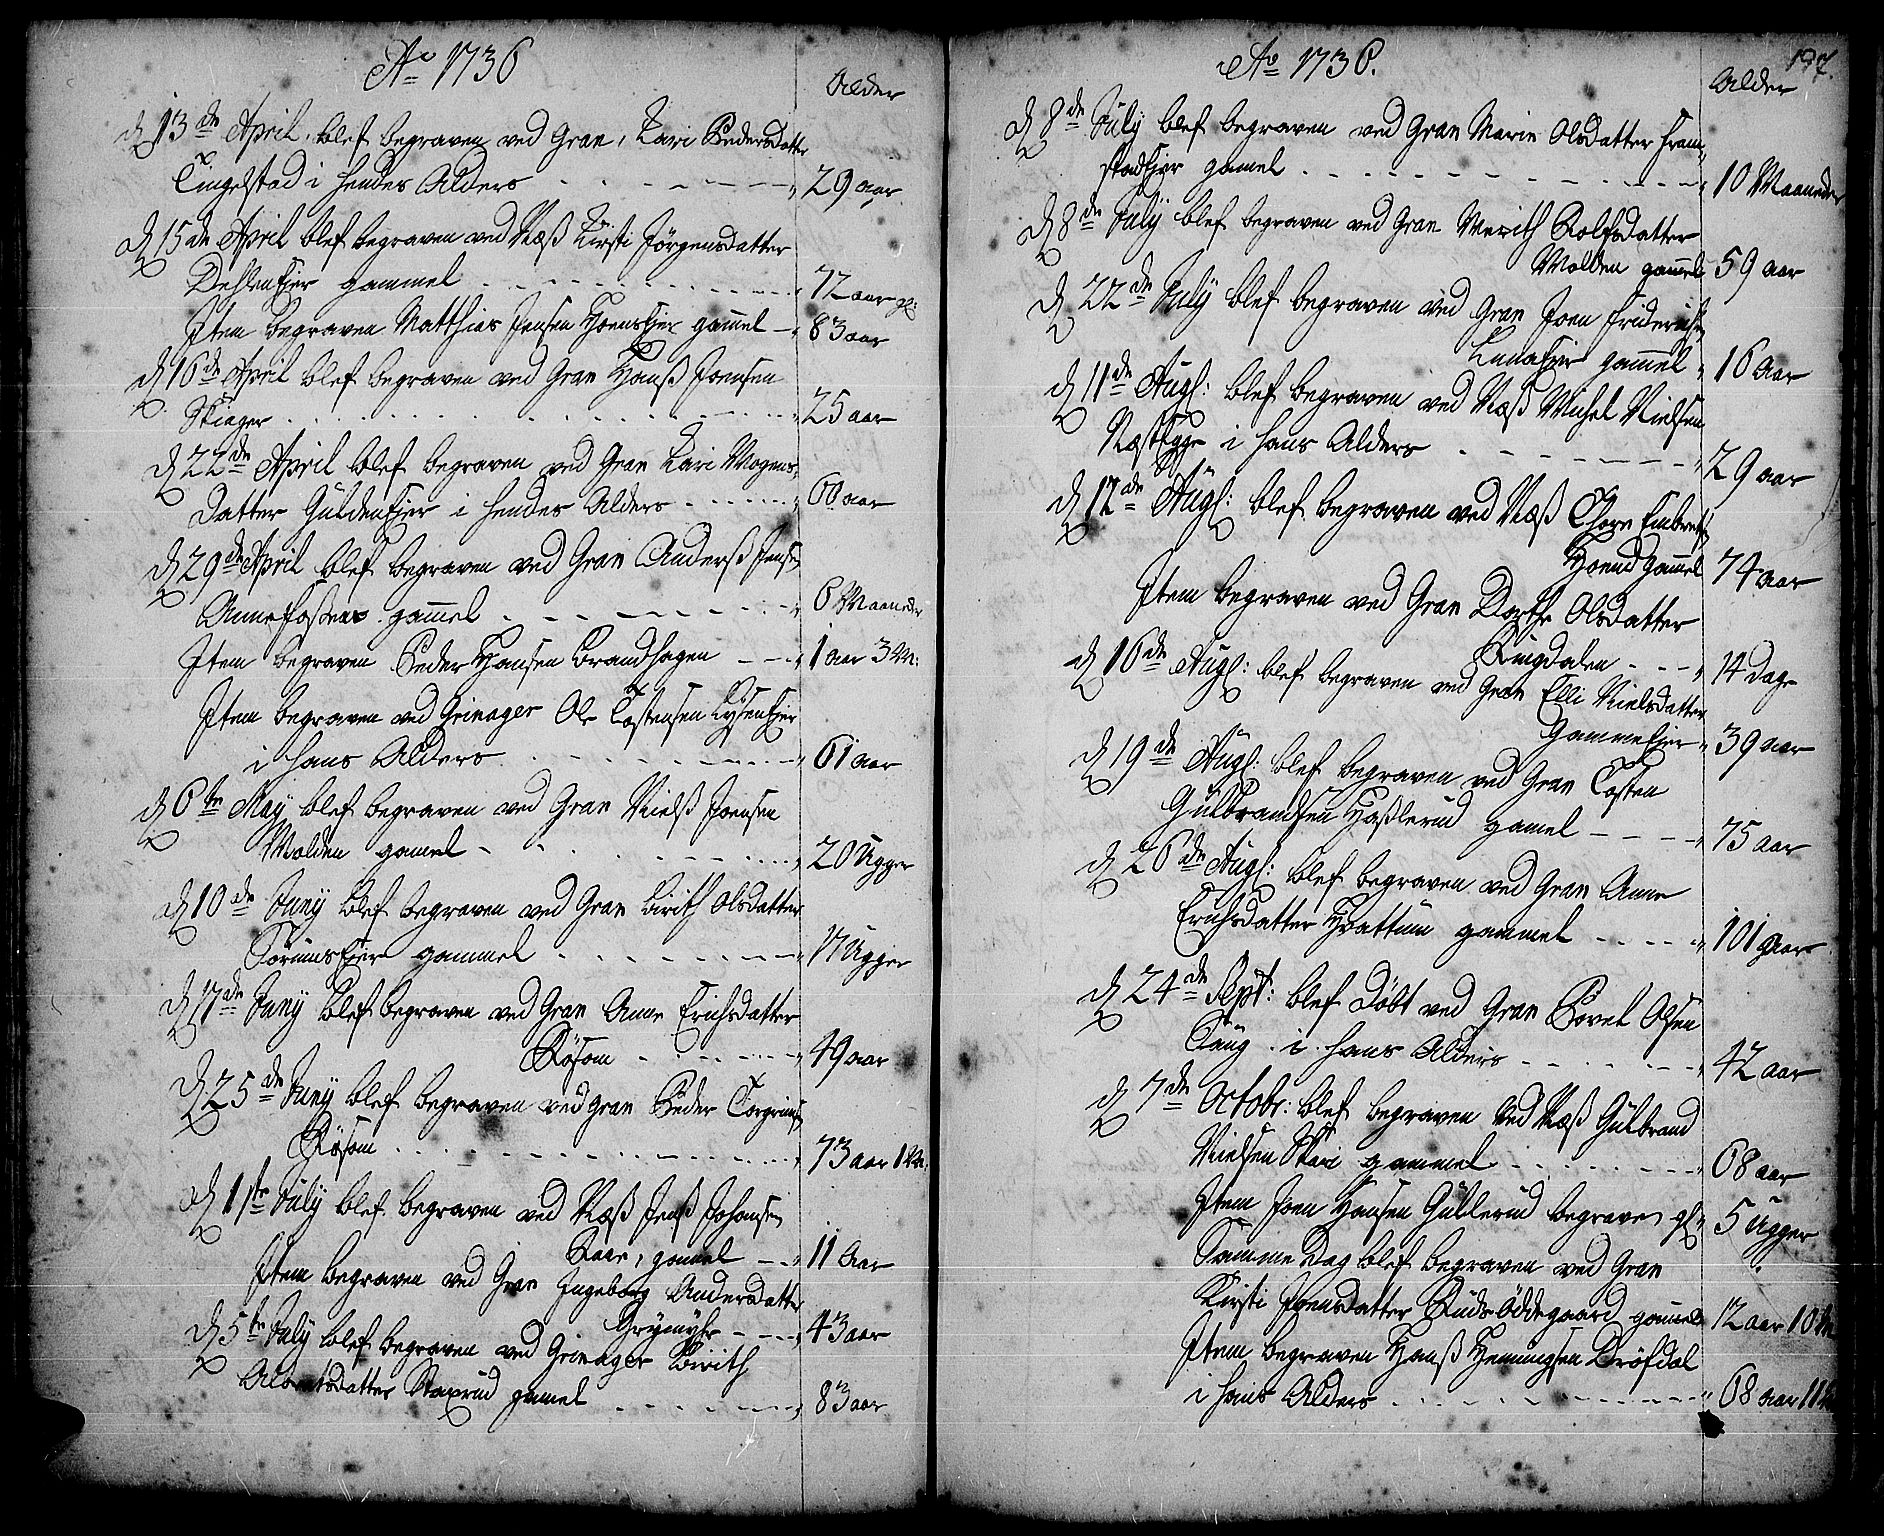 Ao 1736
Alder
d 13de April blef begraven ved Gran, Kari Pedersdatter
Tingelstad i hendes Alders 29 aar
d 15de April blef begraven ved Næss Kirsti Jørgensdatter
DehlenEjer gammel 72 aar gl:
Item begraven Matthias Jensen HoensEjer gamel 83 aar
d 16de April blef begraven ved Gran Hanss Joensen
Skiager 25 aar
d 22de April blef begraven ved Gran Kari Mogens
Datter GuldenEjer i hendes Alders 60 aar
d 29de April blef begraven ved Gran Anderss Jensen
gamel 6 Maaneder
Item begraven Peder Hansen Brandhagen 1 aar 3 M:
Item begraven ved Grinager Ole Tostensen LysenEjer
i hans Alders 61 aar
d 6te May blef begraven ved Gran Nielss Joensen
Molden gamel 20 Ugger
d 10de Juny blef begraven ved Gran Birith Olsdatter
gammel 17 Ugger
d 17de Juny blef begraven ved Gran Anne Erichsdatter
Røsom 49 aar
d 25de Juny blef begraven ved Gran Peder Torgrimss
Røsom 73 aar 1 M:
d 1ste July blef begraven ved Næss Jenss Johansen
gamel 11 Aar
Item begraven ved Gran Ingeborg Andersdatter
Grymyhr 43 aar
d 5te July blef begraven ved Grinager Birith
Albretsdatter Staxrud gamel 83 aar
Ao 1736.
197.
Alder
d 8de July blef begraven ved Gran Marie Olsdatter Fram
stadEjer gamel 10 Maaneder
d 8de July blef begraven ved Gran Merith Rolfsdatter
Molden gamel 59 aar
d 22de July blef begraven ved Gran Joen Friderichsen
gamel 16 Aar
d 11de Aug: blef begraven ved Næss Michel Nielsen
i hans Alders 29 aar
d 12de Aug: blef begraven ved Næss Thore Embretss
Hoenud gamel 74 aar
Item begraven ved Gran Dorthe Olsdatter
Ringdalen 14 dage
d 16de Aug: blef begraven ved Gran Elli Nielsdatter
GammeEjer 39 aar
d 19de Aug: blef begraven ved Gran Tosten
Gulbrandsen Hasslerud gamel 75 aar
d 26de Aug: blef begraven ved Gran Anne
Erichsdatter Hvattum gammel 101 aar
d 24de Sept: blef Døbt ved Gran Povel Olsen
i hans Alders 42 aar
d 7de Octobr: blef begraven ved Næss Gulbrand
Nielsen Skari gammel 68 aar
Item Joen Hansen Gullerud begraven gl 5 Ugger
Samme Dag blef begraven ved Gran
Kirsti Joensdatter Ruds Øddegaard gamel 12 aar 10 M
Item begraven Hanss Hemingsen Drøfdal
i hans Alders 68 aar 11